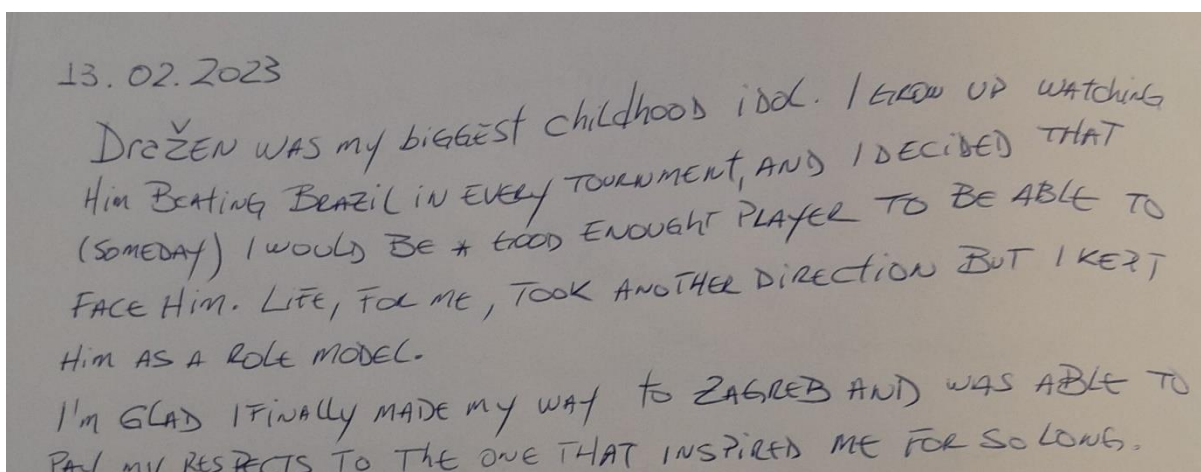 13.02.2023
DražEN WAS my biGGESt childhooD iDOL. I GROW UP WAtchiNG
Him BEATiNG BRAZiL iN EVERY TOURNMENT, AND I DECiDED THAT
(SOMEDAY) I WOULD BE * GOOD ENOUGHT PLAYER TO BE ABLE TO
FACE Him. LiFE, FOR ME, TOOK ANOTHER DiRECtiON BUT I KEPT
Him AS A ROLE MODEL.
I'm GLAD I FiNALLY MADE MY WAY to ZAGREB AND WAS ABLE TO
PAY MY RESPECTS TO THE ONE THAT INSPiRED ME FOR SO LONG.